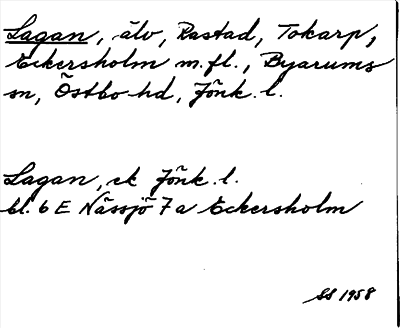 Lagan, älv, Rastad, Tokarp,
Eckersholm m.fl., Byarums
sn, Östbo hd, Jönk. l.
Lagan, ek Jönk. l.
bl. 6 E Nässjö 7 a Eckersholm
SS 1958